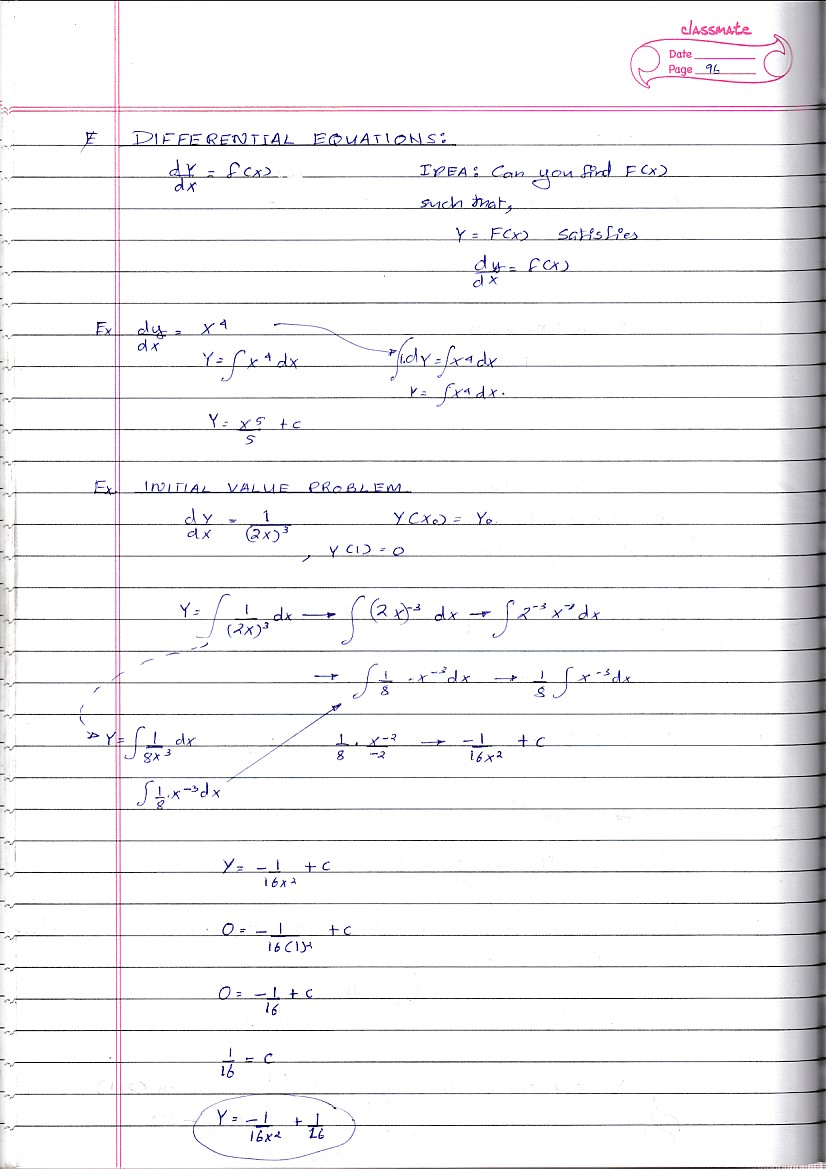 classmate
Date
Page 96
E DIFFERENTIAL EQUATIONS:
dY/dx = f(x) IDEA: Can you find F(x)
such that,
Y = F(x) satisfies
dy/dx = f(x)
Ex dy/dx = x^4
Y = ∫ x^4 dx ∫1.dY = ∫x^4 dx
Y = ∫x^4 dx.
Y = x^5/5 + c
Ex. INITIAL VALUE PROBLEM
dY/dx = 1/(2x)^3 Y(x₀) = Y₀
, Y(1) = 0
Y = ∫ 1/(2x)^3 dx → ∫ (2x)^-3 dx → ∫ 2^-3 x^-3 dx
→ ∫ 1/8 · x^-3 dx → 1/8 ∫ x^-3 dx
Y = ∫ 1/8x^3 dx 1/8 · x^-2/-2 → -1/16x^2 + c
∫ 1/8 · x^-3 dx
Y = -1/16x^2 + c
0 = -1/16(1)^2 + c
0 = -1/16 + c
1/16 = c
Y = -1/16x^2 + 1/16